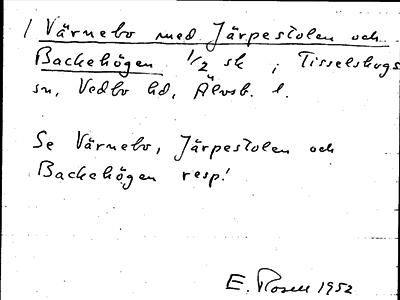 / Värnebo med Järpestolen och
Backehögen 1/2 sk i Tisselskogs
sn, Vedbo hd, Älvsb. l.
Se Värnebo, Järpestolen och
Backehögen resp!
E. Rosell 1952